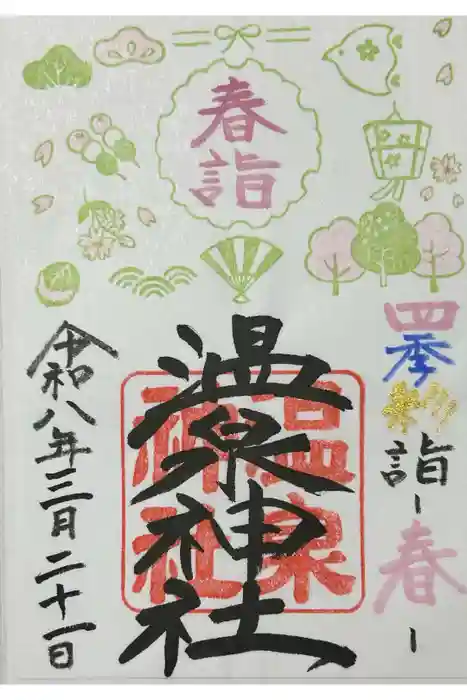 春詣
四季祭詣-春-
温泉神社
温泉
神社
令和八年三月二十一日